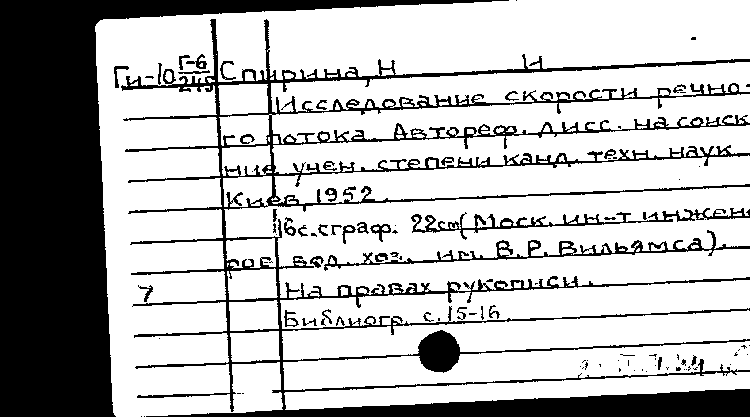 Ги-10 Г-6/245 Спирина, Н И
Исследование скорости речно-
го потока. Автореф. дисс. на соиск
ние учен. степени канд. техн. наук
Киев, 1952.
16с. с граф. 22cm (Моск. ин-т инжене
ров вод. хоз. им. В.Р. Вильямса).
7 На правах рукописи.
Библиогр. с. 15-16.